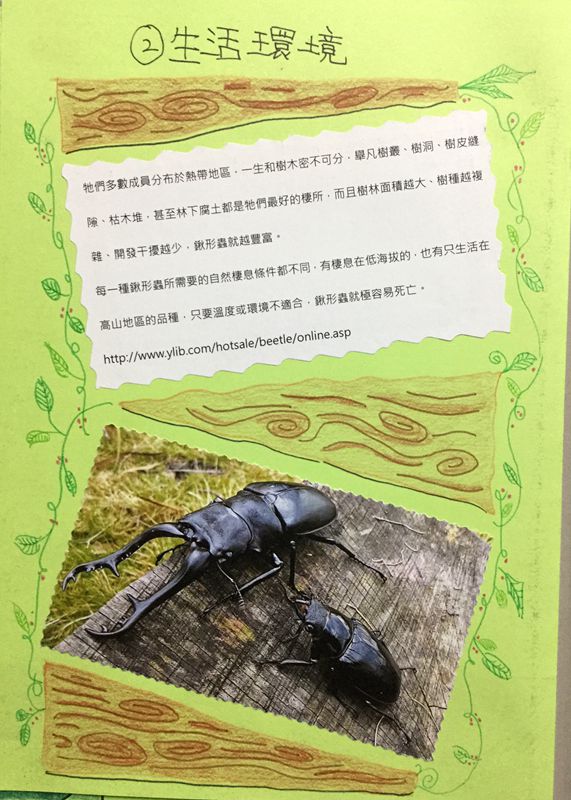 ②生活環境
牠們多數成員分布於熱帶地區，一生和樹木密不可分，舉凡樹叢、樹洞、樹皮縫
隙、枯木堆，甚至林下腐土都是牠們最好的棲所，而且樹林面積越大、樹種越複
雜、開發干擾越少，鍬形蟲就越豐富。
每一種鍬形蟲所需要的自然棲息條件都不同，有棲息在低海拔的，也有只生活在
高山地區的品種，只要溫度或環境不適合，鍬形蟲就極容易死亡。
http://www.ylib.com/hotsale/beetle/online.asp